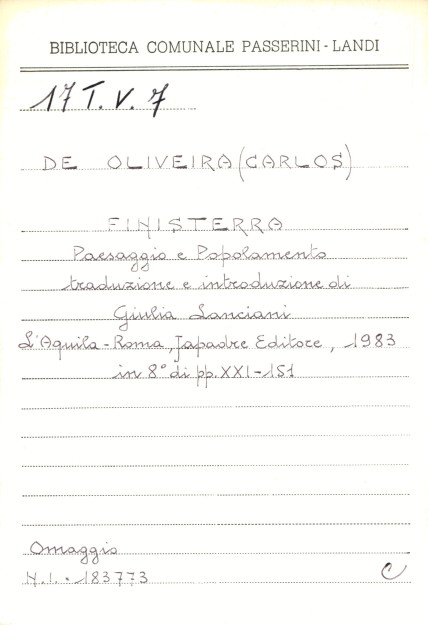 BIBLIOTECA COMUNALE PASSERINI-LANDI
17 T. V. 7
DE OLIVEIRA (CARLOS)
FINISTERRA
Paesaggio e Popolamento
traduzione e introduzione di
Giulia Lanciani
L'Aquila-Roma, Japadre Editore, 1983
in 8° di pp. XXI-151
Omaggio
N.I. - 183773
C